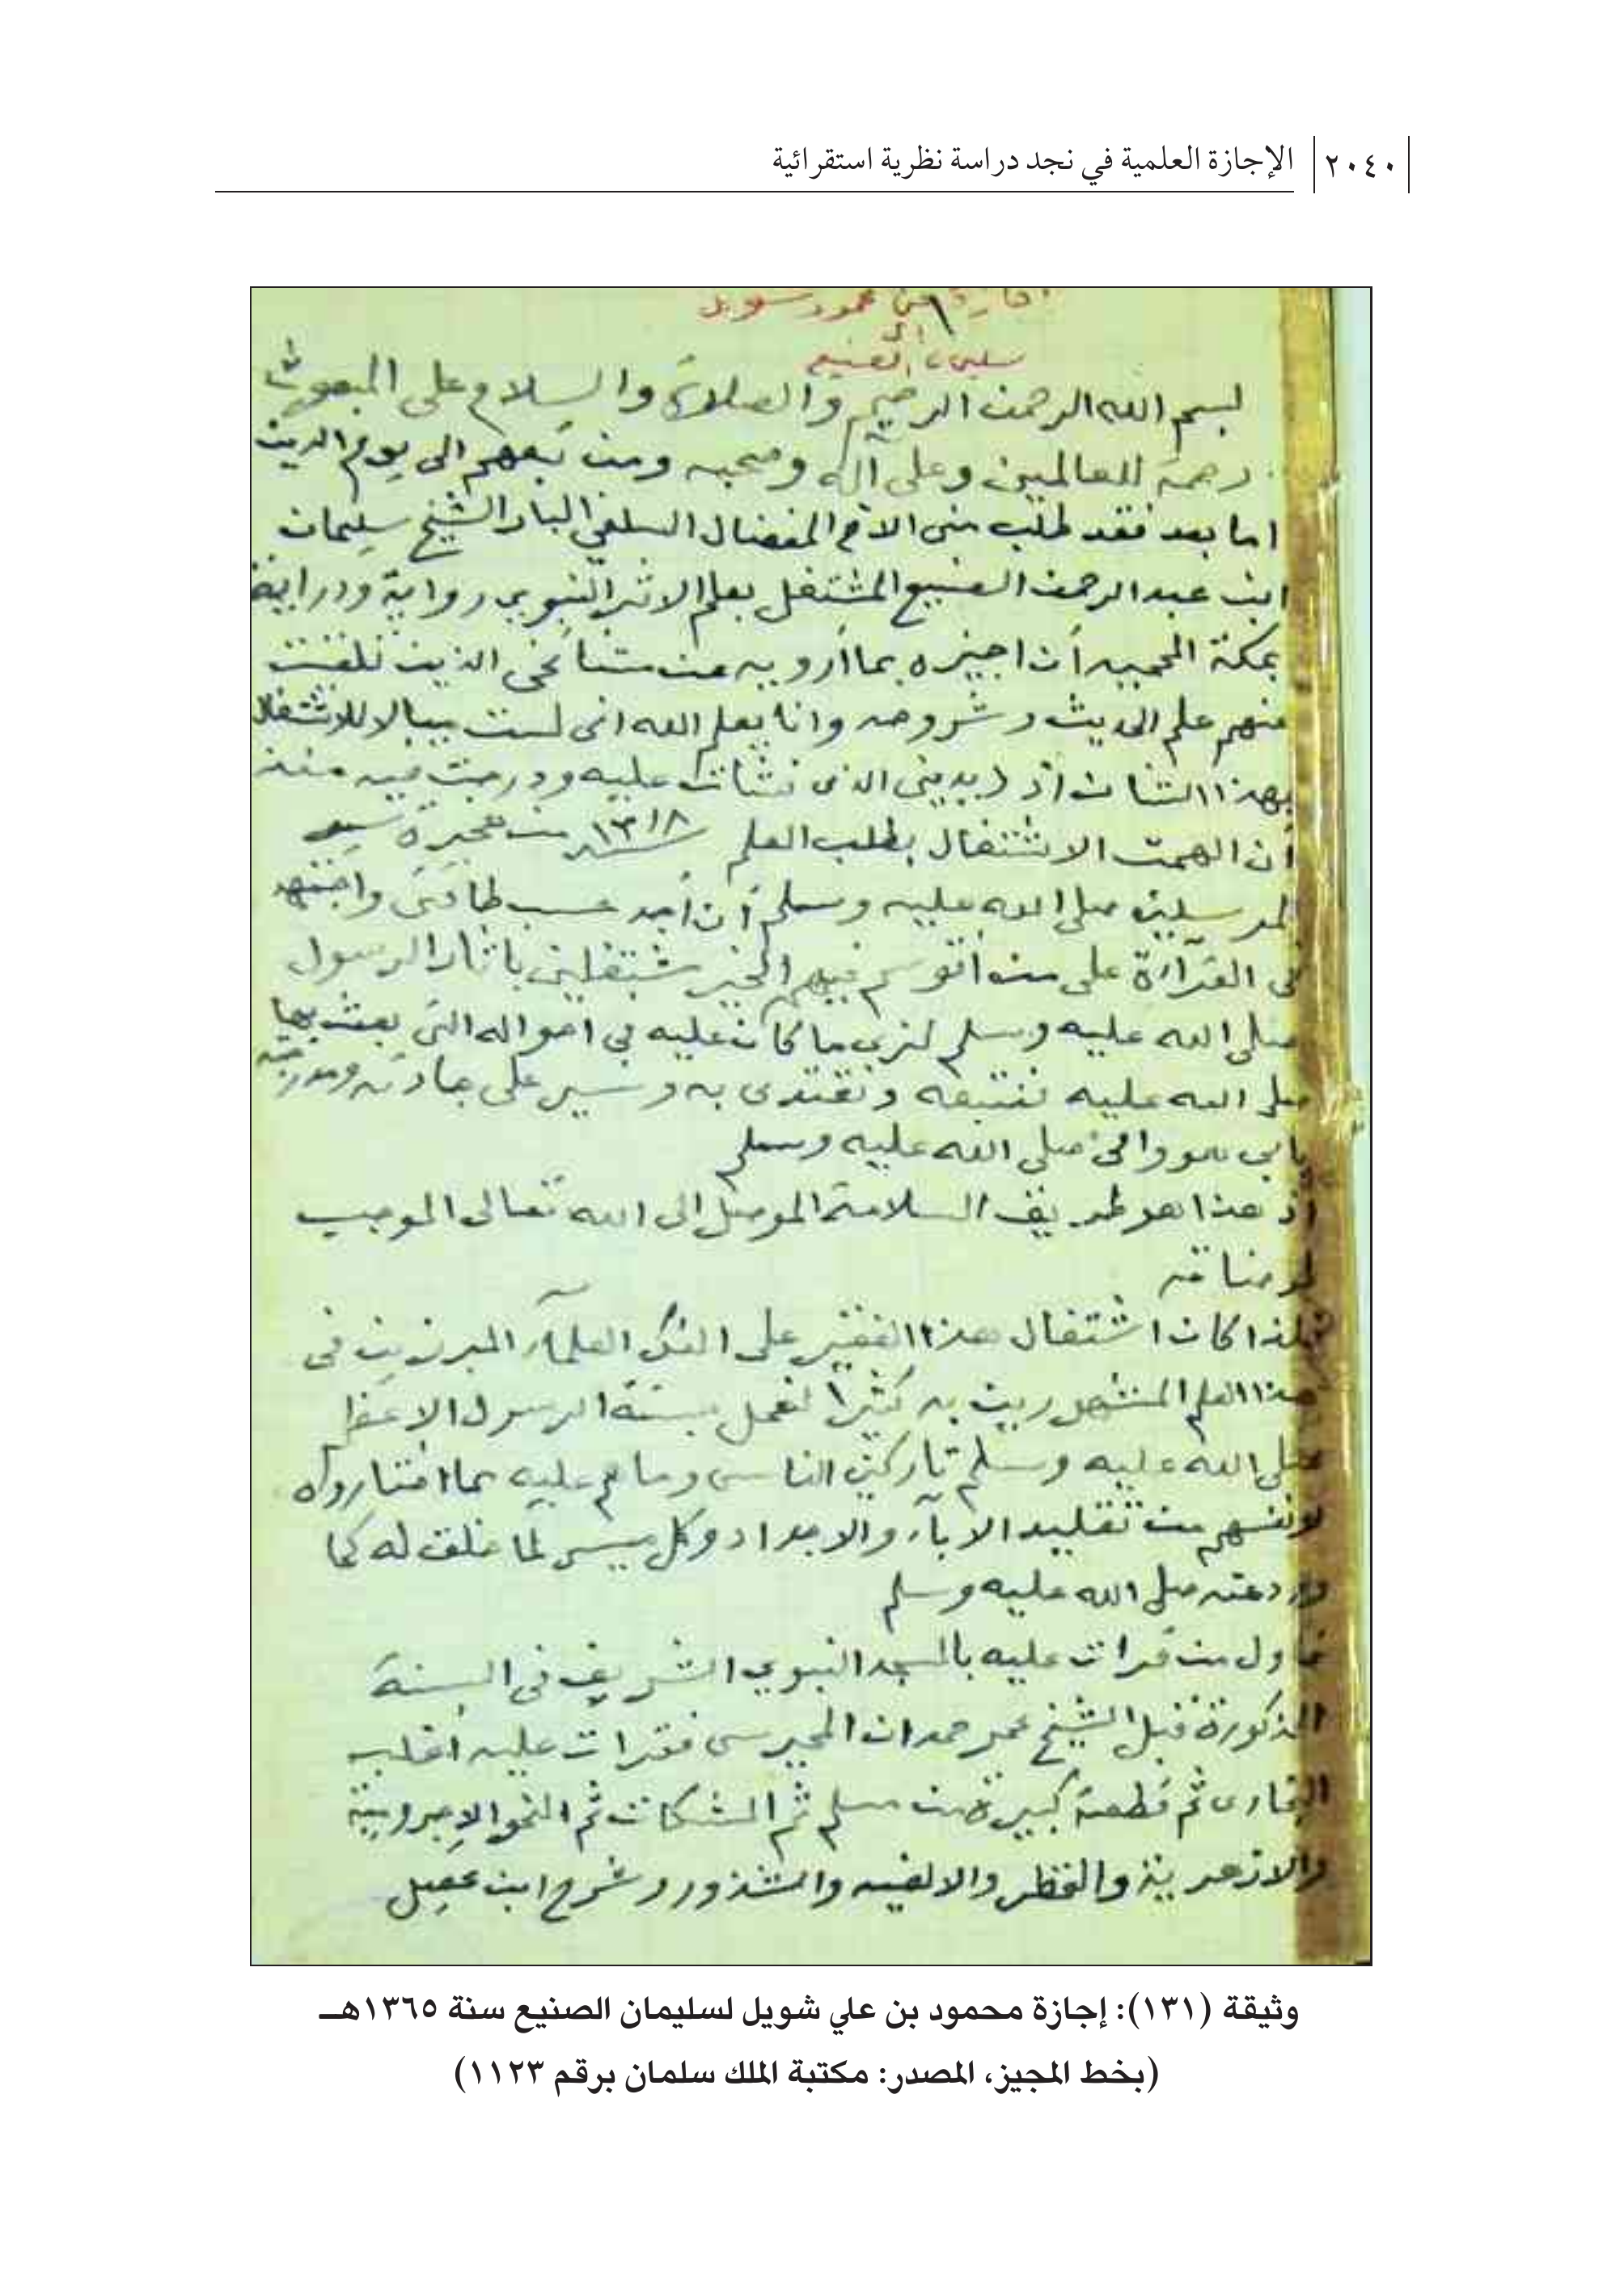 ٢٠٤٠ الإجازة العلمية في نجد دراسة نظرية استقرائية
من محمود شويل
إلى
الصنيع
بسم الله الرحمن الرحيم والصلاة والسلام على المبعوث
رحمة للعالمين وعلى آله وصحبه ومن تبعهم الى يوم الدين
اما بعد فقد طلب منى الاخ المفضال السلفي البار الشيخ سليمان
ابن عبد الرحمن الصنيع المشتغل بعلم الاثر النبوي رواية ودراية
بمكة المحمية أن اجيزه بما أرويه عن مشائخي الذين تلقيت
منهم علم الحديث وشروحه وانا يعلم الله انى لست ببال للاشتغال
بهذا الشان اذ ديدني الذى نشات عليه ودرجت فيه منذ
أن الهمت الاشتغال بطلب العلم ١٣١٨ من هجرة سيد
المرسلين صلى الله عليه وسلم أن أجد حسب طاقتى واجتهد
فى القراءة على من أتوسم فيهم الخير مشتغلين باثار الرسول
صلى الله عليه وسلم لنرى ما كان عليه في احواله التى بعث بها
صلى الله عليه فنتبعه ونقتدى به ونسير على جادته
بابي هو وامي صلى الله عليه وسلم
اذ هذا هو طريق السلامة الموصل إلى الله تعالى الموجب
لمرضاته
فلهذا كان اشتغال هذا الفقير على العلمآء المبرزين فى
هذا العلم المشتهرين به كثيرا لنعمل بسنة الرسول الاعظم
صلى الله عليه وسلم تاركين الناس وما هم عليه بما اختاروه
لانفسهم من تقليد الابآء والاجداد وكل ميسر لما خلق له كما
ورد عنه صلى الله عليه وسلم
فاول من قرات عليه بالمسجد النبوي الشريف فى السنة
المذكورة قبل الشيخ عمر حمدان المحرسى فقرات عليه أغلب
البخارى ثم قطعة كبيرة من مسلم ثم المشكات ثم النحو الاجرومية
والازهرية والقطر والالفيه والشذور وشرح ابن عقيل
وثيقة (١٣١): إجازة محمود بن علي شويل لسليمان الصنيع سنة ١٣٦٥هـ
(بخط المجيز، المصدر: مكتبة الملك سلمان برقم ١١٢٣)